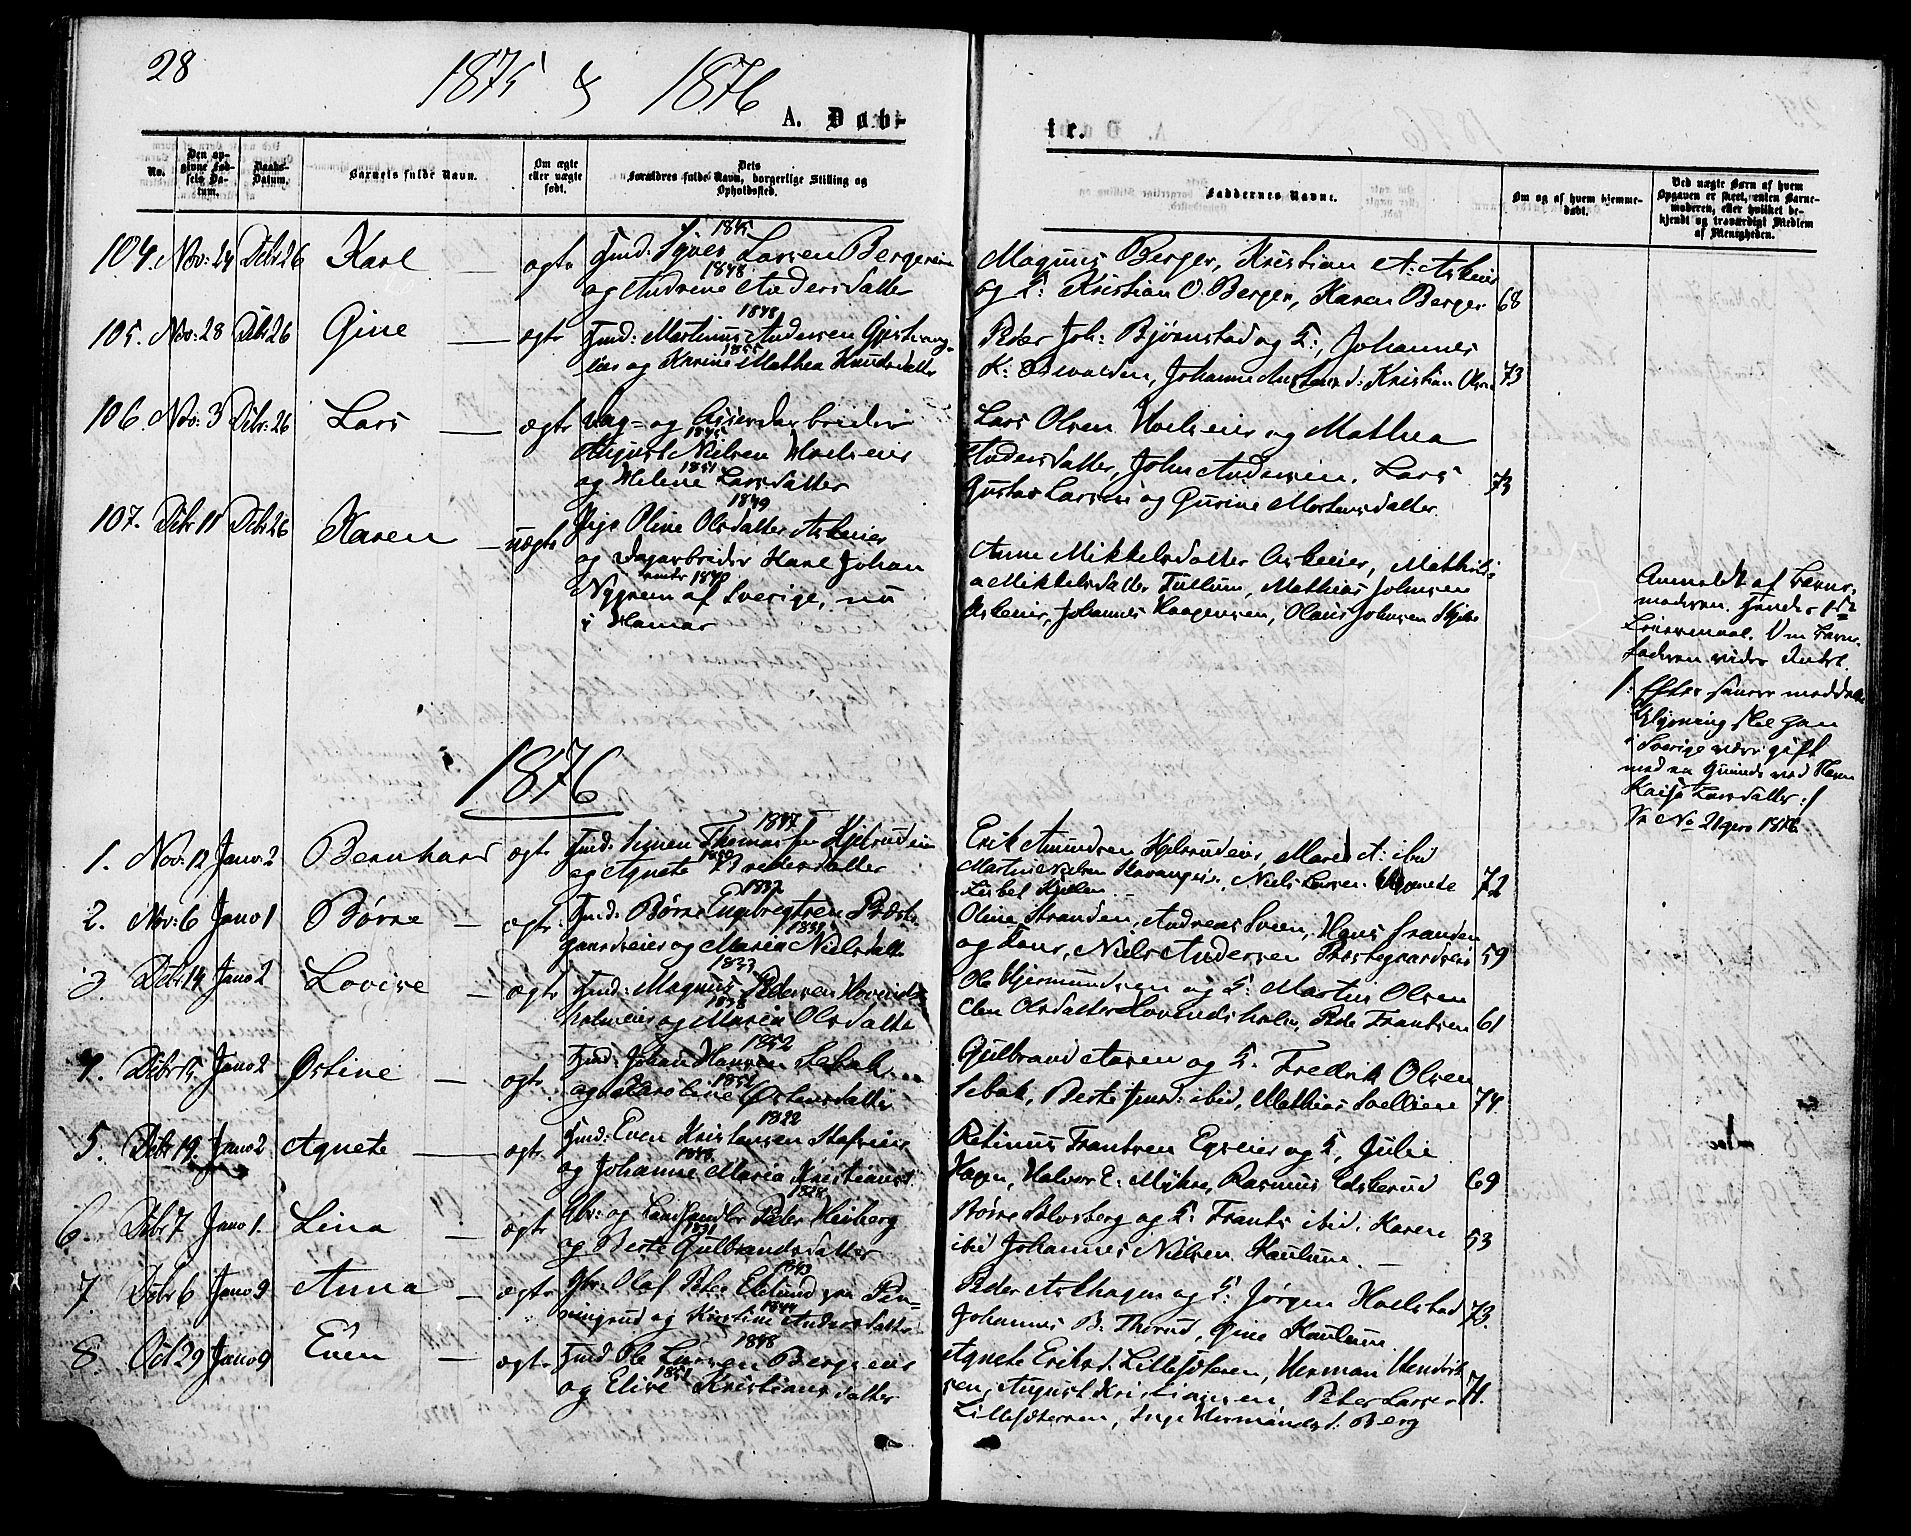 28
1875 & 1876
A. Døbte.
No.
Den opgivne Fødsels Datum.
Daabs-Datum.
Barnets fulde Navn.
Om ægte eller uægte født.
Dets Forældres fulde Navn, borgerlige Stilling og Opholdssted.
Faddernes Navne.
Om og af hvem hjemmedøbt.
Ved uægte Børn af hvem Opgaven er skeet, enten Barnemoderen, eller hvilket bekjendt og troværdigt Medlem af Menigheden.
104. Nov: 24 Dcbr 26 Karl — ægte
1845
Jmd: Syver Larsen Bergseie
1848
og Andrine Andersdatter
Magnus Berger, Kristian A: Askeie
og F: Kristian O. Berger, Karen Berger 68
105. Nov: 28 Dcbr 26 Gine — ægte
1848
Jmd: Martinus Andersen
1855
og Karine Mathea Knudsdatter
Peder Joh: Bjørnstad og F:, Johannes
K: Johanne Kristian Olsen 73
106. Nov: 3 Dcbr: 26 Lars — ægte
Dag- og arbeider
1845
August Nielsen Hoelseie
1851
og Helene Larsdatter
Lars Olsen Hoelseie og Mathea
Andersdatter, John Andersen, Lars
Gustav Larsen og Gurine Mortensdatter. 73
107. Dcbr 11 Dcbr 26 Karen — uægte
1849
Pige Oline Olsdatter Askeie
og Dagarbeider Karl Johan
1840
Nygren af Sverige, nu
i Hamar
Anne Mikkelsdatter Askeie, Mathilda
Mikkelsdatter Tullum, Mathias Johnsen
Askeie, Johannes Haagensen, Olaus Johnsen
Anmeldt af Barne-
moderen. Hendes 1ste
Leiermaal. Om Barne-
faderen vides Intet.
/: Efter senere meddelt
Oplysning skal han
i Sverige være gift
med en Kvinde ved Navn
Kaisa Larsdatter :/
1876
1. Nov: 12 Janr 2 Bernhard ægte
1847
Jmd: Simen Thomassen Hjelsrudeie
1850
og Agnete Pedersdatter
Erik Amundsen Hjelsrudeie, Maren A: ibid
Martin Nielsen Niels Larsen Agnete
Lisbet 72
2. Nov: 6 Janr 1 Børre — ægte
1832
Jmd: Børre Engebregtsen Præste-
1831
gaardseie og Maria Nielsdatter
Oline Stranden, Andreas Sveen, Hans Stranden
og Kone, Niels Andersen Præstegaardseie 59
3. Dcbr 14 Janr 2 Lovise — ægte
1833
Jmd: Magnus Pedersen Hovinds-
1838
holmeie og Maria Olsdatter
Ole Gjermundsen og F: Martin Olsen
Elen Olsdatter Hovindsholm, Peder Frantsen 61
4. Dcbr 15 Janr 2 Østine — ægte
1852
Jmd: Johan Hansen Sebak
1851
og Karoline Østensdatter
Gulbrand Aasen og F. Fredrik Olsen
Sebak, Berte Jmsd: ibid, Mathias Svelliene 74
5. Dcbr 19. Janr 2 Agnete — ægte
1822
Jmd: Even Kristensen Stafseie
1848
og Johanne Maria Kristiansd:
Petinus Frantsen Egseie og F, Julie
Hagen, Halvor E. Myhre, Rasmus Edskerud 69
6. Dcbr. 7 Janr 1. Lina — ægte
1828
Gbr: og Landhandler Peder Wiberg
1831
og Berte Gulbrandsdatter
Børre Solvsberg og F: Frants ibid, Karen
ibid Johannes Nielsen Kaulum. — 53
7. Dcbr 6 Janr 9 Anna — ægte
1843
Gbr. Olaf Peter Eklund paa Pen-
1844
ningrud og Kristine Andersdatter
Peder Askhagen og F: Jørgen Hoelstad
Johannes B. Thorud, Gine Kaulum. 73.
8. Oct 29 Janr 9 Even — ægte
1848
Jmd Ole Larsen Bergseie
1851
og Elise Kristiansdatter
Agnete Eriksd. Lillesæteren, Herman Hendrik-
sen, August Kristiansen Peter Larsen 71.
Lillesæteren, Inge Hermansd: Berg